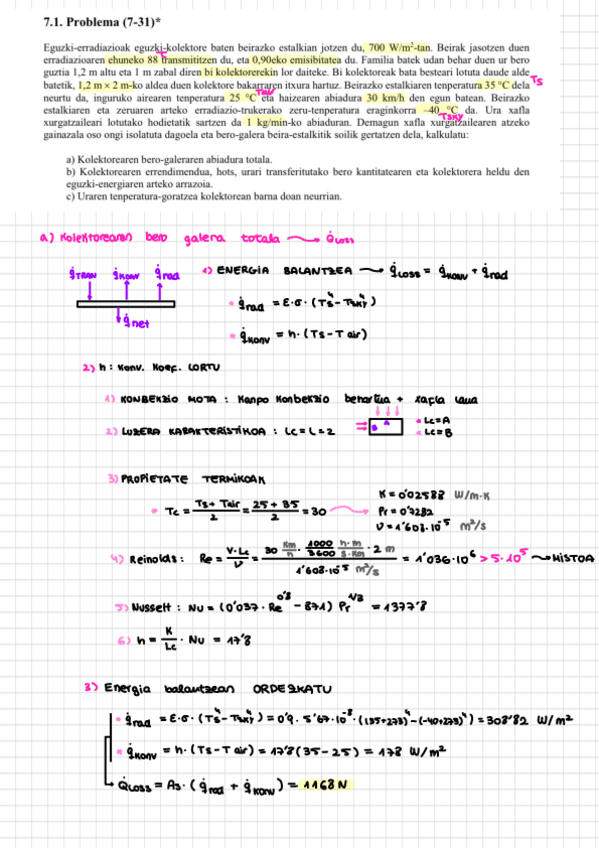 7.1. Problema (7-31)*
Eguzki-erradiazioak eguzki-kolektore baten beirazko estalkian jotzen du, 700 W/m²-tan. Beirak jasotzen duen
erradiazioaren ehuneko 88 transmititzen du, eta 0,90eko emisibitatea du. Familia batek udan behar duen ur bero
guztia 1,2 m altu eta 1 m zabal diren bi kolektorerekin lor daiteke. Bi kolektoreak bata besteari lotuta daude alde
Ts
batetik, 1,2 m × 2 m-ko aldea duen kolektore bakarraren itxura hartuz. Beirazko estalkiaren tenperatura 35 °C dela
Tair
neurtu da, inguruko airearen tenperatura 25 °C eta haizearen abiadura 30 km/h den egun batean. Beirazko
estalkiaren eta zeruaren arteko erradiazio-trukerako zeru-tenperatura eraginkorra −40 °C da. Ura xafla
Tsky
xurgatzaileari lotutako hodietatik sartzen da 1 kg/min-ko abiaduran. Demagun xafla xurgatzailearen atzeko
gainazala oso ongi isolatuta dagoela eta bero-galera beira-estalkitik soilik gertatzen dela, kalkulatu:
a) Kolektorearen bero-galeraren abiadura totala.
b) Kolektorearen errendimendua, hots, urari transferitutako bero kantitatearen eta kolektorera heldu den
eguzki-energiaren arteko arrazoia.
c) Uraren tenperatura-goratzea kolektorean barna doan neurrian.
a) Kolektorearen bero galera totala → Q̇Loss
q̇TRAN q̇KONV q̇rad
q̇net
1) ENERGIA BALANTZEA → q̇Loss = q̇konv + q̇rad
• q̇rad = ε·σ·(Ts⁴ - Tsky⁴)
• q̇konv = h·(Ts - Tair)
2) h: Konv. Koef. LORTU
1) KONBEKZIO MOTA: Kanpo Konbekzio behartua + xapla laua
2) LUZERA KARAKTERISTIKOA: Lc = L = 2
B A • Lc=A
• Lc=B
3) PROPIETATE TERMIKOAK
• Tc = (Ts + Tair)/2 = (25 + 35)/2 = 30 → K = 0'02588 W/m·K
Pr = 0'7282
ν = 1'608·10⁻⁵ m²/s
4) Reinolds: Re = V·Lc/ν = (30 Km/h · 1000/3600 h·m/s·Km · 2 m)/(1'608·10⁻⁵ m²/s) = 1'036·10⁶ > 5·10⁵ → NISTOA
5) Nusselt: Nu = (0'037·Re^0'8 - 871) Pr^1/3 = 1377'8
6) h = K/Lc · Nu = 17'8
3) Energia balantzean ORDEZKATU
• q̇rad = ε·σ·(Ts⁴ - Tsky⁴) = 0'9·5'67·10⁻⁸·((35+273)⁴ - (-40+273)⁴) = 308'82 W/m²
• q̇konv = h·(Ts - Tair) = 17'8(35 - 25) = 178 W/m²
Q̇Loss = As·(q̇rad + q̇konv) = 1168 N